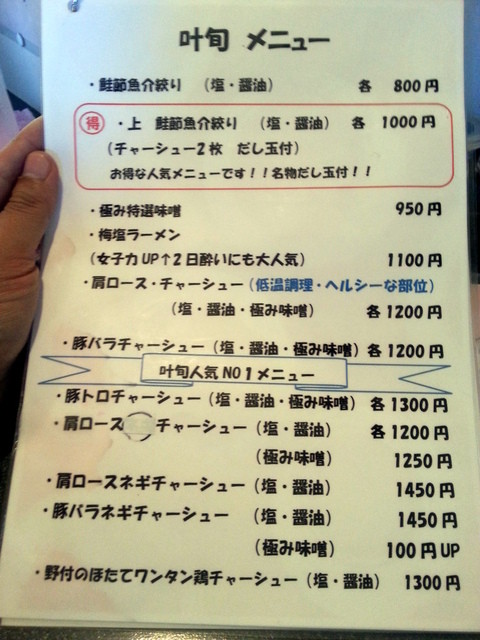 叶旬 メニュー
・鮭節魚介絞り （塩・醤油） 各 800円
得 ・上 鮭節魚介絞り （塩・醤油） 各 1000円
（チャーシュー2枚 だし玉付）
お得な人気メニューです！！名物だし玉付！！
・極み特選味噌 950円
・梅塩ラーメン
（女子力UP↑2日酔いにも大人気） 1100円
・肩ロース・チャーシュー（低温調理・ヘルシーな部位）
（塩・醤油・極み味噌） 各1200円
・豚バラチャーシュー（塩・醤油・極み味噌）各1200円
叶旬人気NO1メニュー
・豚トロチャーシュー（塩・醤油・極み味噌） 各1300円
・肩ロース チャーシュー（塩・醤油） 各1200円
（極み味噌） 1250円
・肩ロースネギチャーシュー（塩・醤油） 1450円
・豚バラネギチャーシュー （塩・醤油） 1450円
（極み味噌） 100円UP
・野付のほたてワンタン鶏チャーシュー（塩・醤油） 1300円